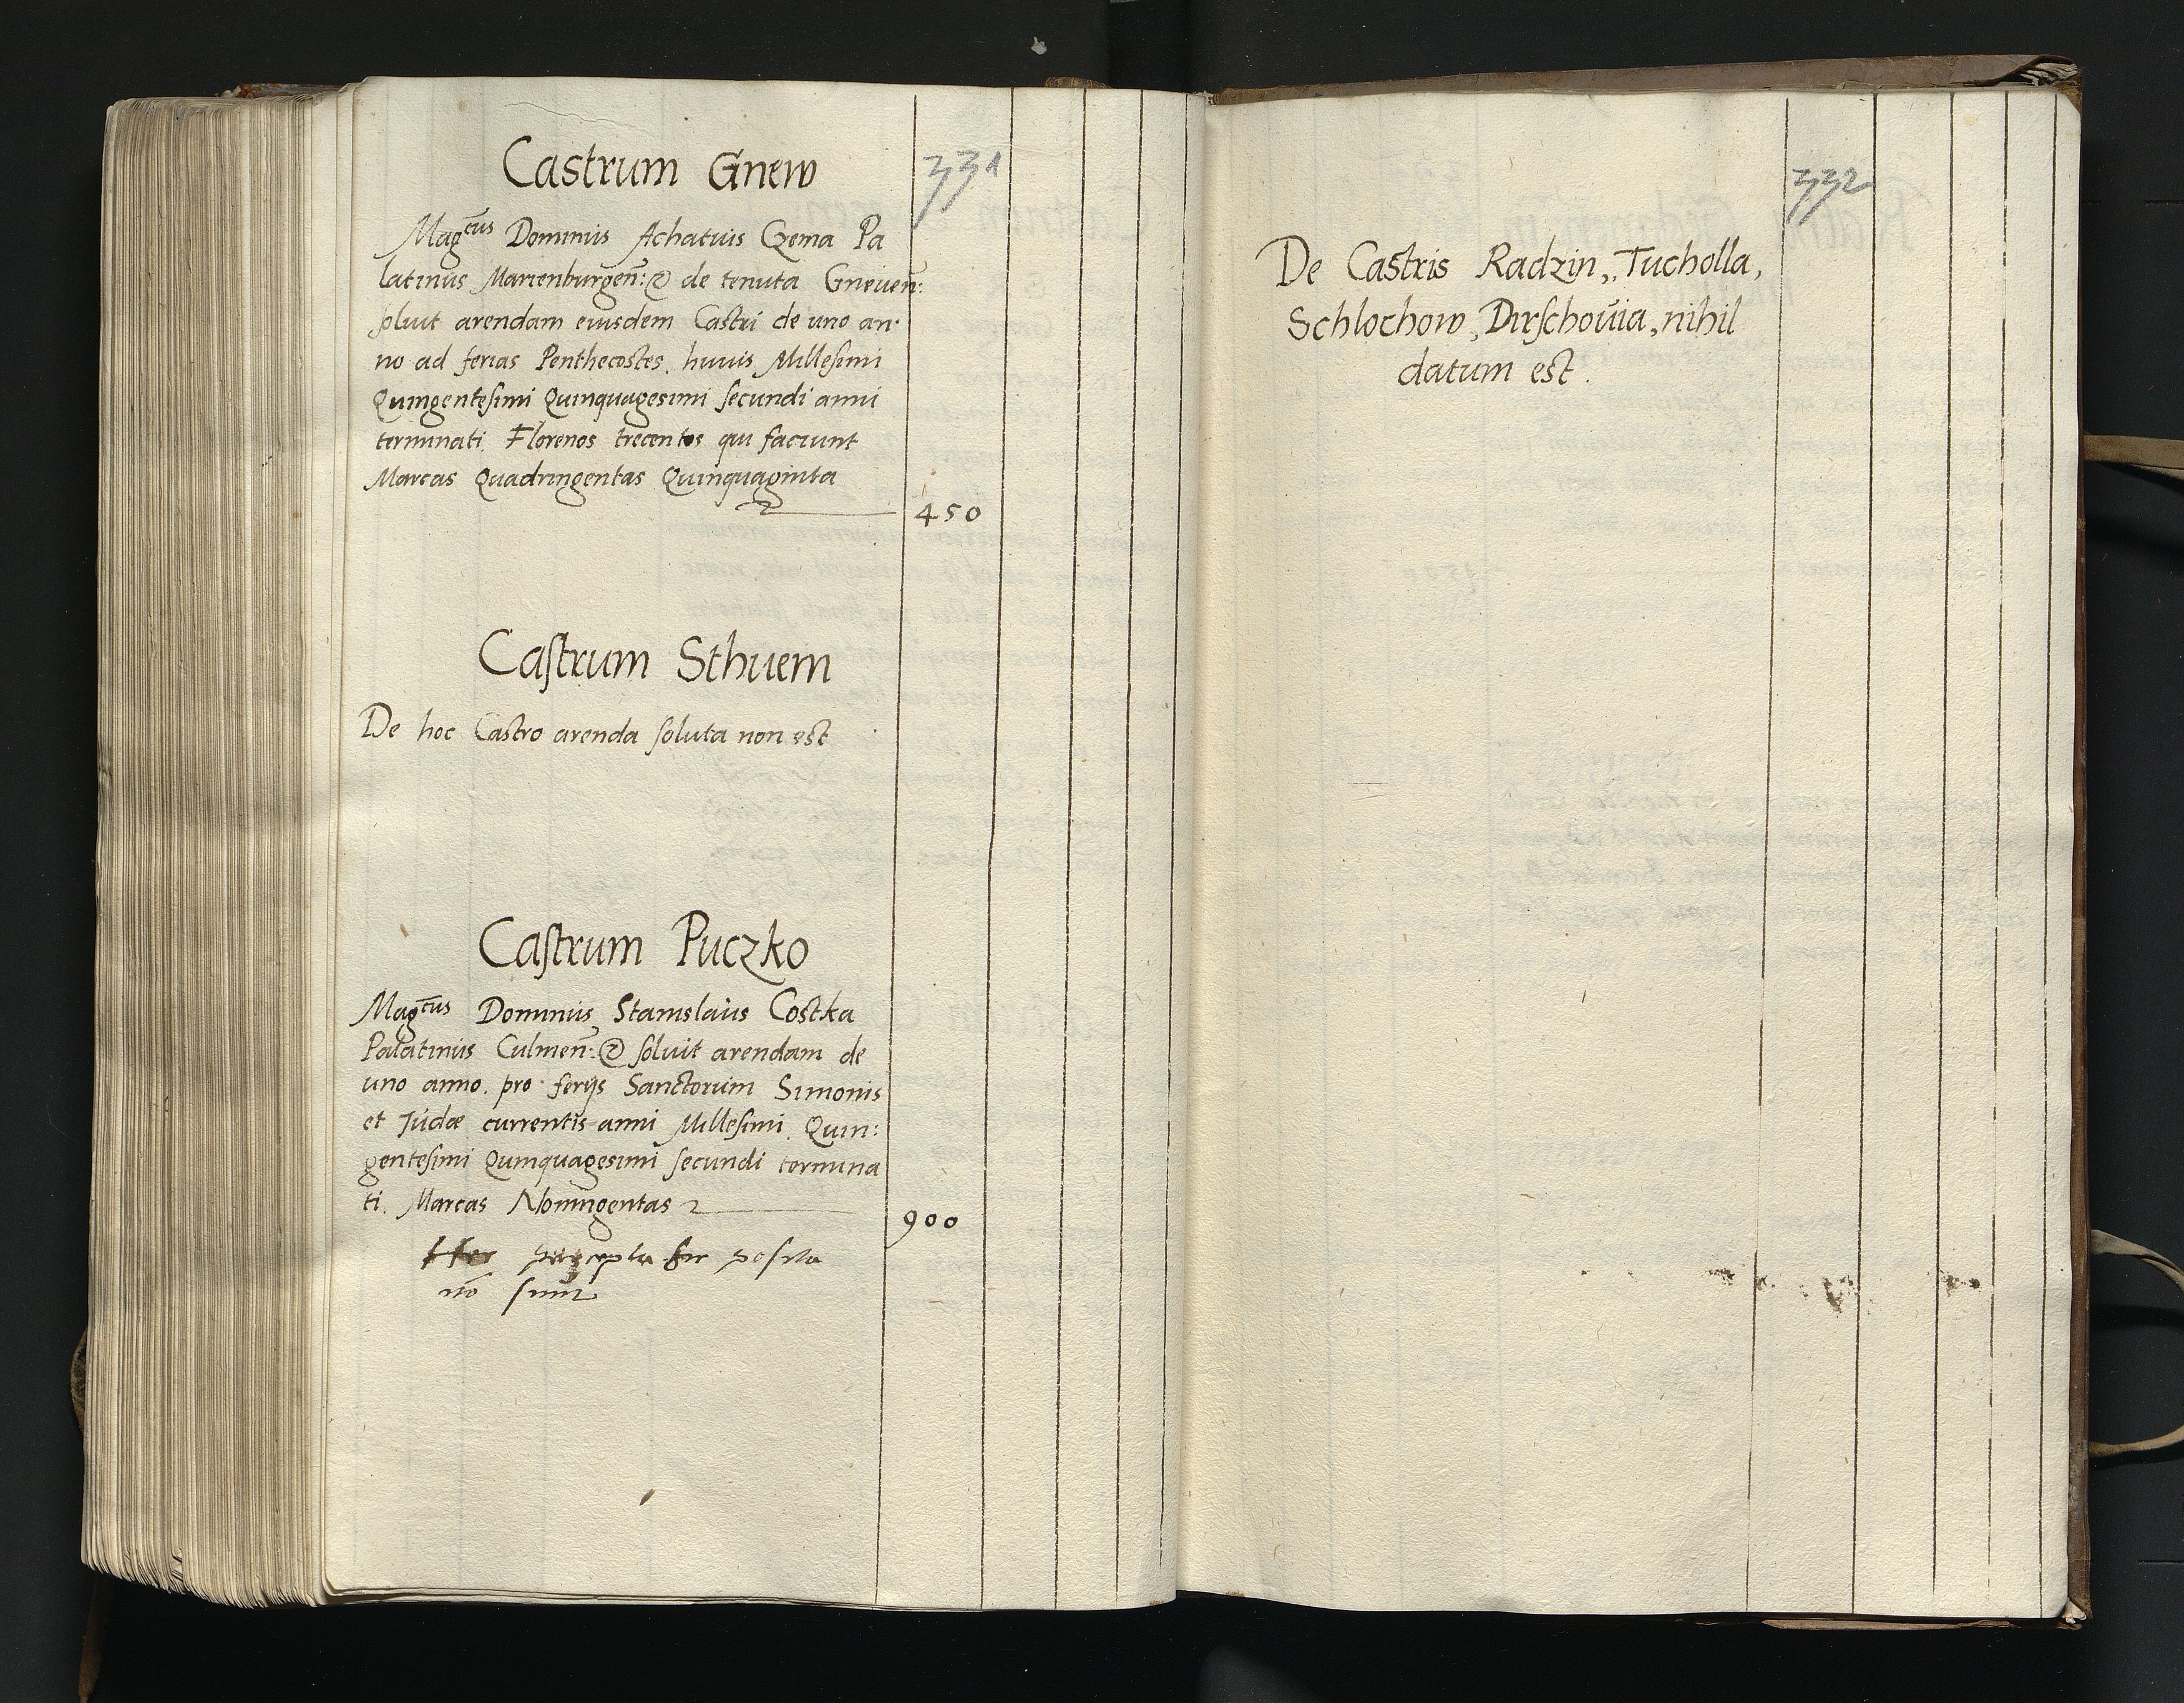 Castrum Gnew
331
Mag^cus Dominus Achatius Czema Pa
latinus Marienburgeñ: & de tenuta Gneueñ:
soluit arendam eiusdem Castri de uno an
no ad ferias Penthecostes huius Millesimi
Quingentesimi Quinquagesimi secundi anni
terminati Florenos trecentos qui faciunt
Marcas Quadringentas Quinquaginta
450
Castrum Sthuem
De hoc Castro arenda soluta non est
Castrum Puczko
Mag^cus Dominus Stanislaus Costka
Palatinus Culmeñ: & soluit arendam de
uno anno pro ferijs Sanctorum Simonis
et Judæ currentis anni Millesimi Quin:
gentesimi Quinquagesimi secundi termina
ti. Marcas Noningentas
900
percepta posita
nō sunt
332
De Castris Radzin, Tucholla,
Schlochow, Dirschouia, nihil
datum est.